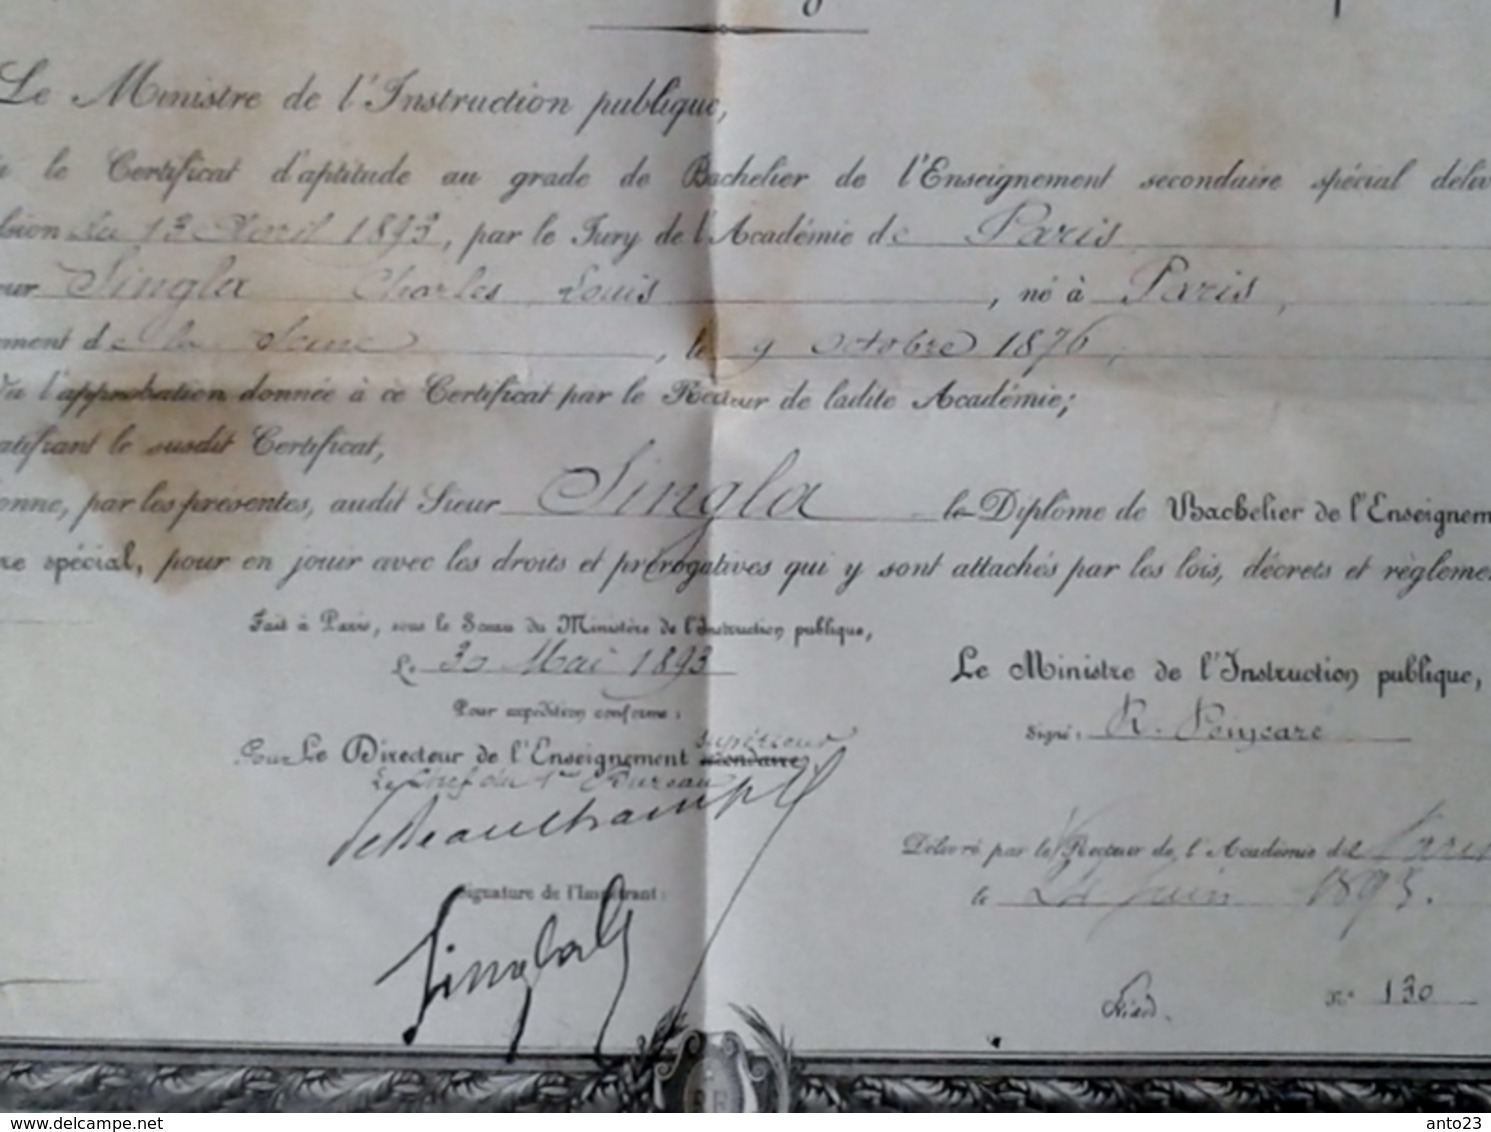 Le Ministre de l'Instruction publique,
le Certificat d'aptitude au grade de Bachelier de l'Enseignement secondaire spécial déliv
du 13 Avril 1893, par le Jury de l'Académie de Paris
eur Singla Charles Louis, né à Paris,
ment de la Seine, le 9 octobre 1876,
Vu l'approbation donnée à ce Certificat par le Recteur de ladite Académie;
atifiant le susdit Certificat,
onne, par les présentes, audit Sieur Singla le Diplôme de Bachelier de l'Enseignem
re spécial, pour en jouir avec les droits et prérogatives qui y sont attachés par les lois, décrets et règleme
Fait à Paris, sous le Sceau du Ministère de l'Instruction publique,
Le 30 Mai 1893
Pour expédition conforme:
Pour Le Directeur de l'Enseignement secondaire, supérieur
Le Chef du 1er Bureau
de Beauchamp
Signature de l'Impétrant:
Singla
Le Ministre de l'Instruction publique,
Signé: R. Poincaré
Délivré par le Recteur de l'Académie de Paris
le Juin 1893.
N° 130
delcampe.net
anto23